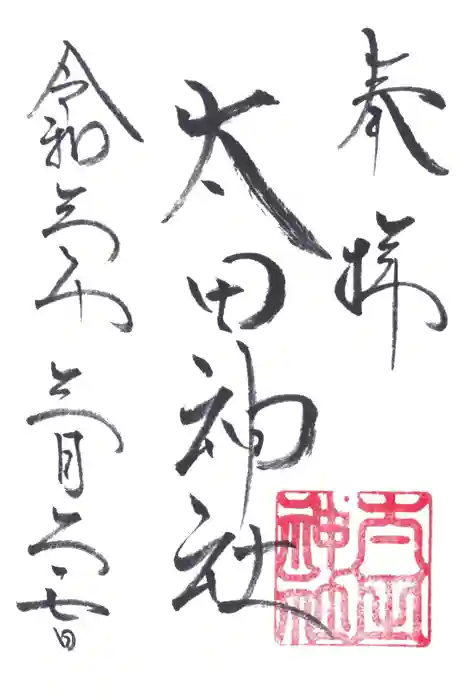 奉拝
太田神社
令和三年三月二十七日
太田神社